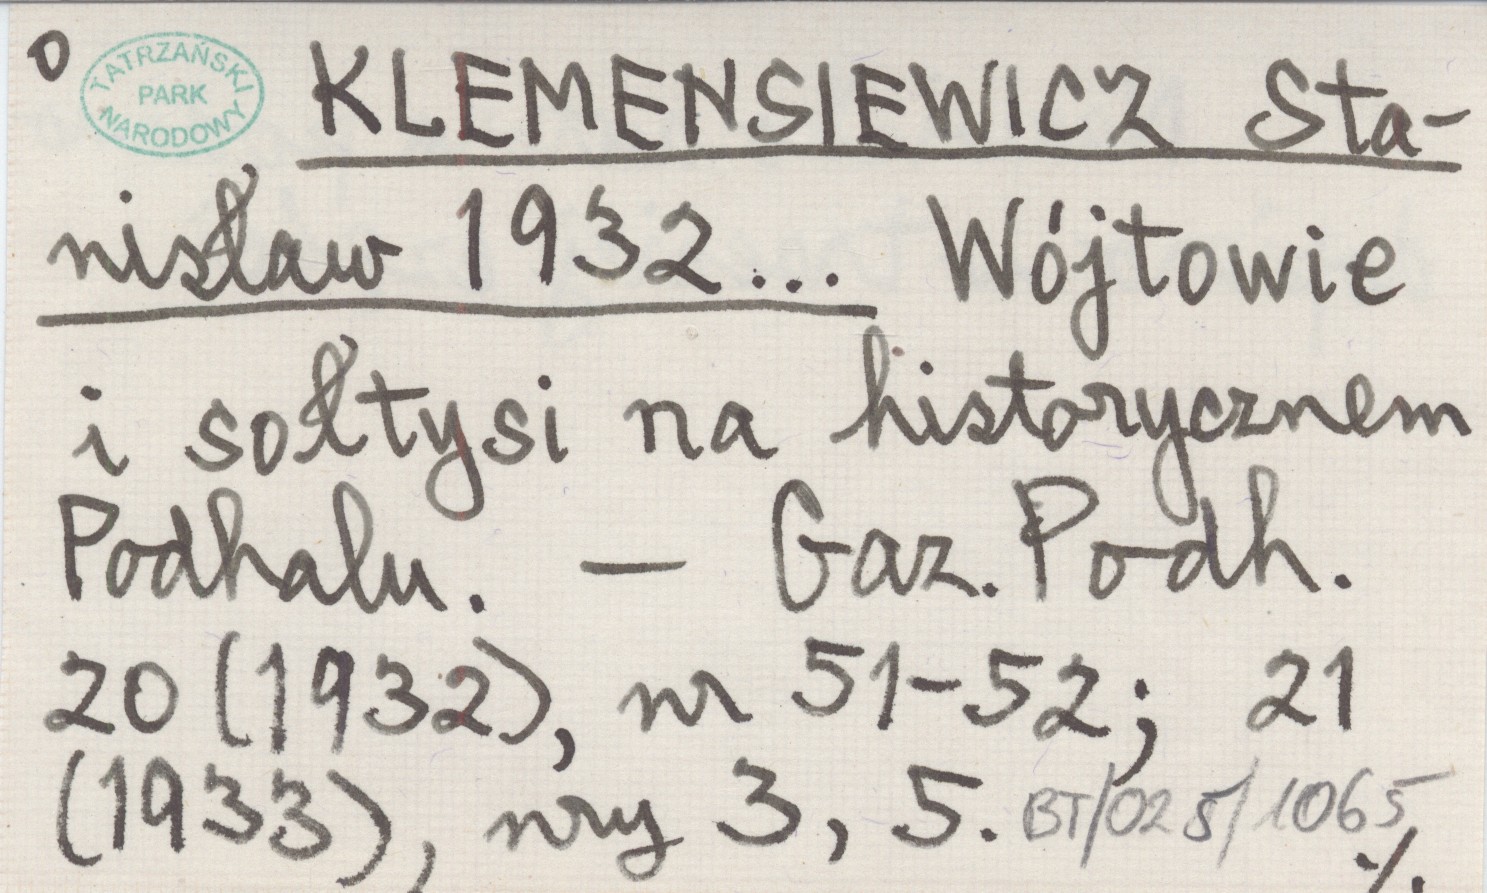 O
TATRZAŃSKI
PARK
NARODOWY
KLEMENSIEWICZ Sta-
nisław 1932... Wójtowie
i sołtysi na historycznem
Podhalu. — Gaz. Podh.
20 (1932), nr 51-52; 21
(1933), nry 3, 5. BT/025/1065
./.